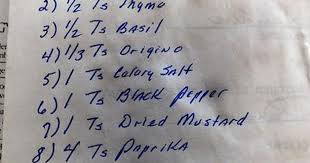 2) 1/2 Ts Thyme
3) 1/2 Ts Basil
4) 1/3 Ts Origino
5) 1 Ts Calary Salt
6) 1 Ts Black Pepper
7) 1 Ts Dried Mustard
8) 4 Ts Paprika